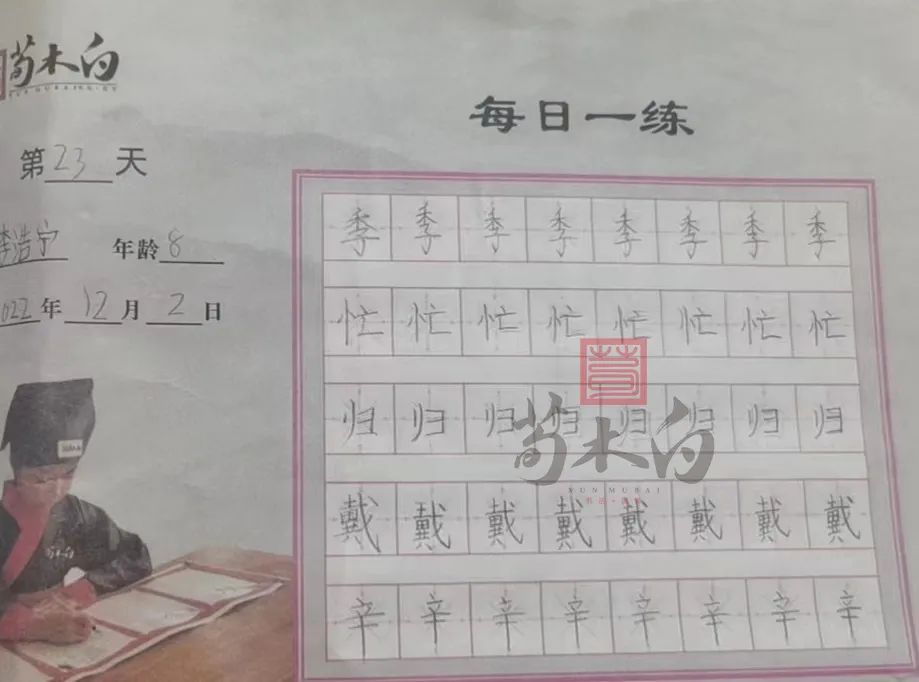 荀木白
每日一练
第23天
李浩宁 年龄8
2022年12月2日
季季季季季季季季
忙忙忙忙忙忙忙忙
归归归归归归归归
戴戴戴戴戴戴戴戴
辛辛辛辛辛辛辛辛
荀木白
XUN MUBAI